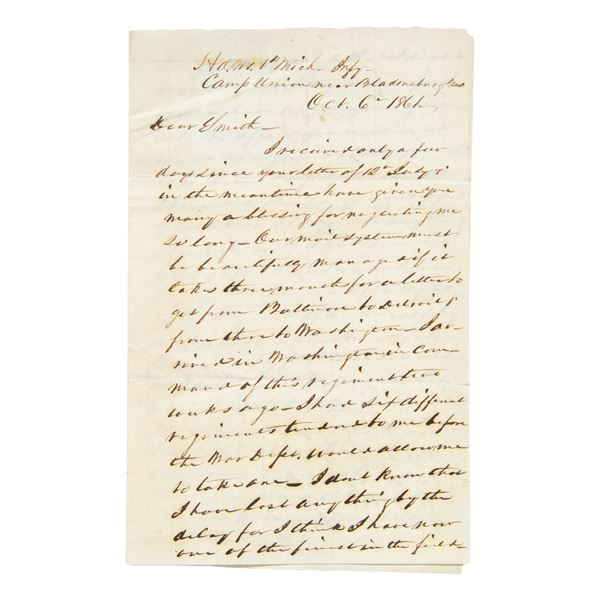 Hd. Qrs. 1st Mich. Infy -
Camp Union near Bladensburg
Oct. 6th 1861
Dear Smith -
I received only a few
days since your letter of 12th July &
in the meantime have given you
many a blessing for neglecting me
so long - Our mail system must
be beautifully managed if it
takes three months for a letter to
get from Baltimore to Detroit &
from there to Washington - I ar-
rived in Washington in com-
mand of this regiment two
weeks ago - I had six different
regiments tendered to me before
the War Dept. would allow me
to take one - I dont know that
I have lost any thing by the
delay for I think I have now
one of the finest in the field -